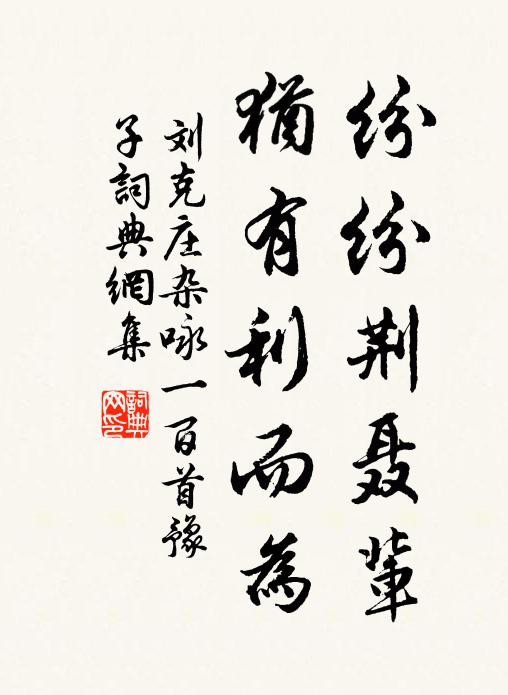 纷纷荆聂辈
犹有利而为
刘克庄杂咏一百首豫
子詞典網集
詞典网印